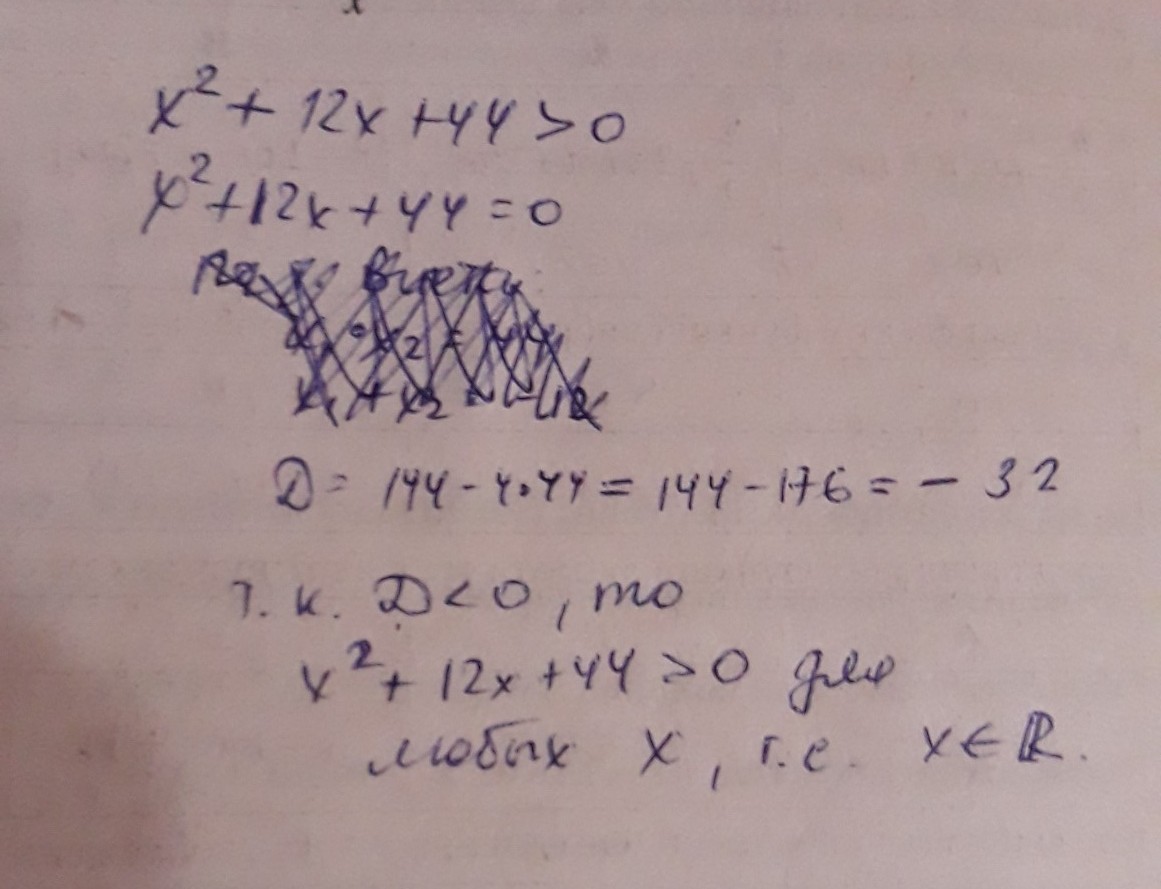 x² + 12x + 44 > 0
x² + 12x + 44 = 0
D = 144 - 4·44 = 144 - 176 = - 32
т. к. D < 0, то
x² + 12x + 44 > 0 для
любых x, т.е. x ∈ ℝ.